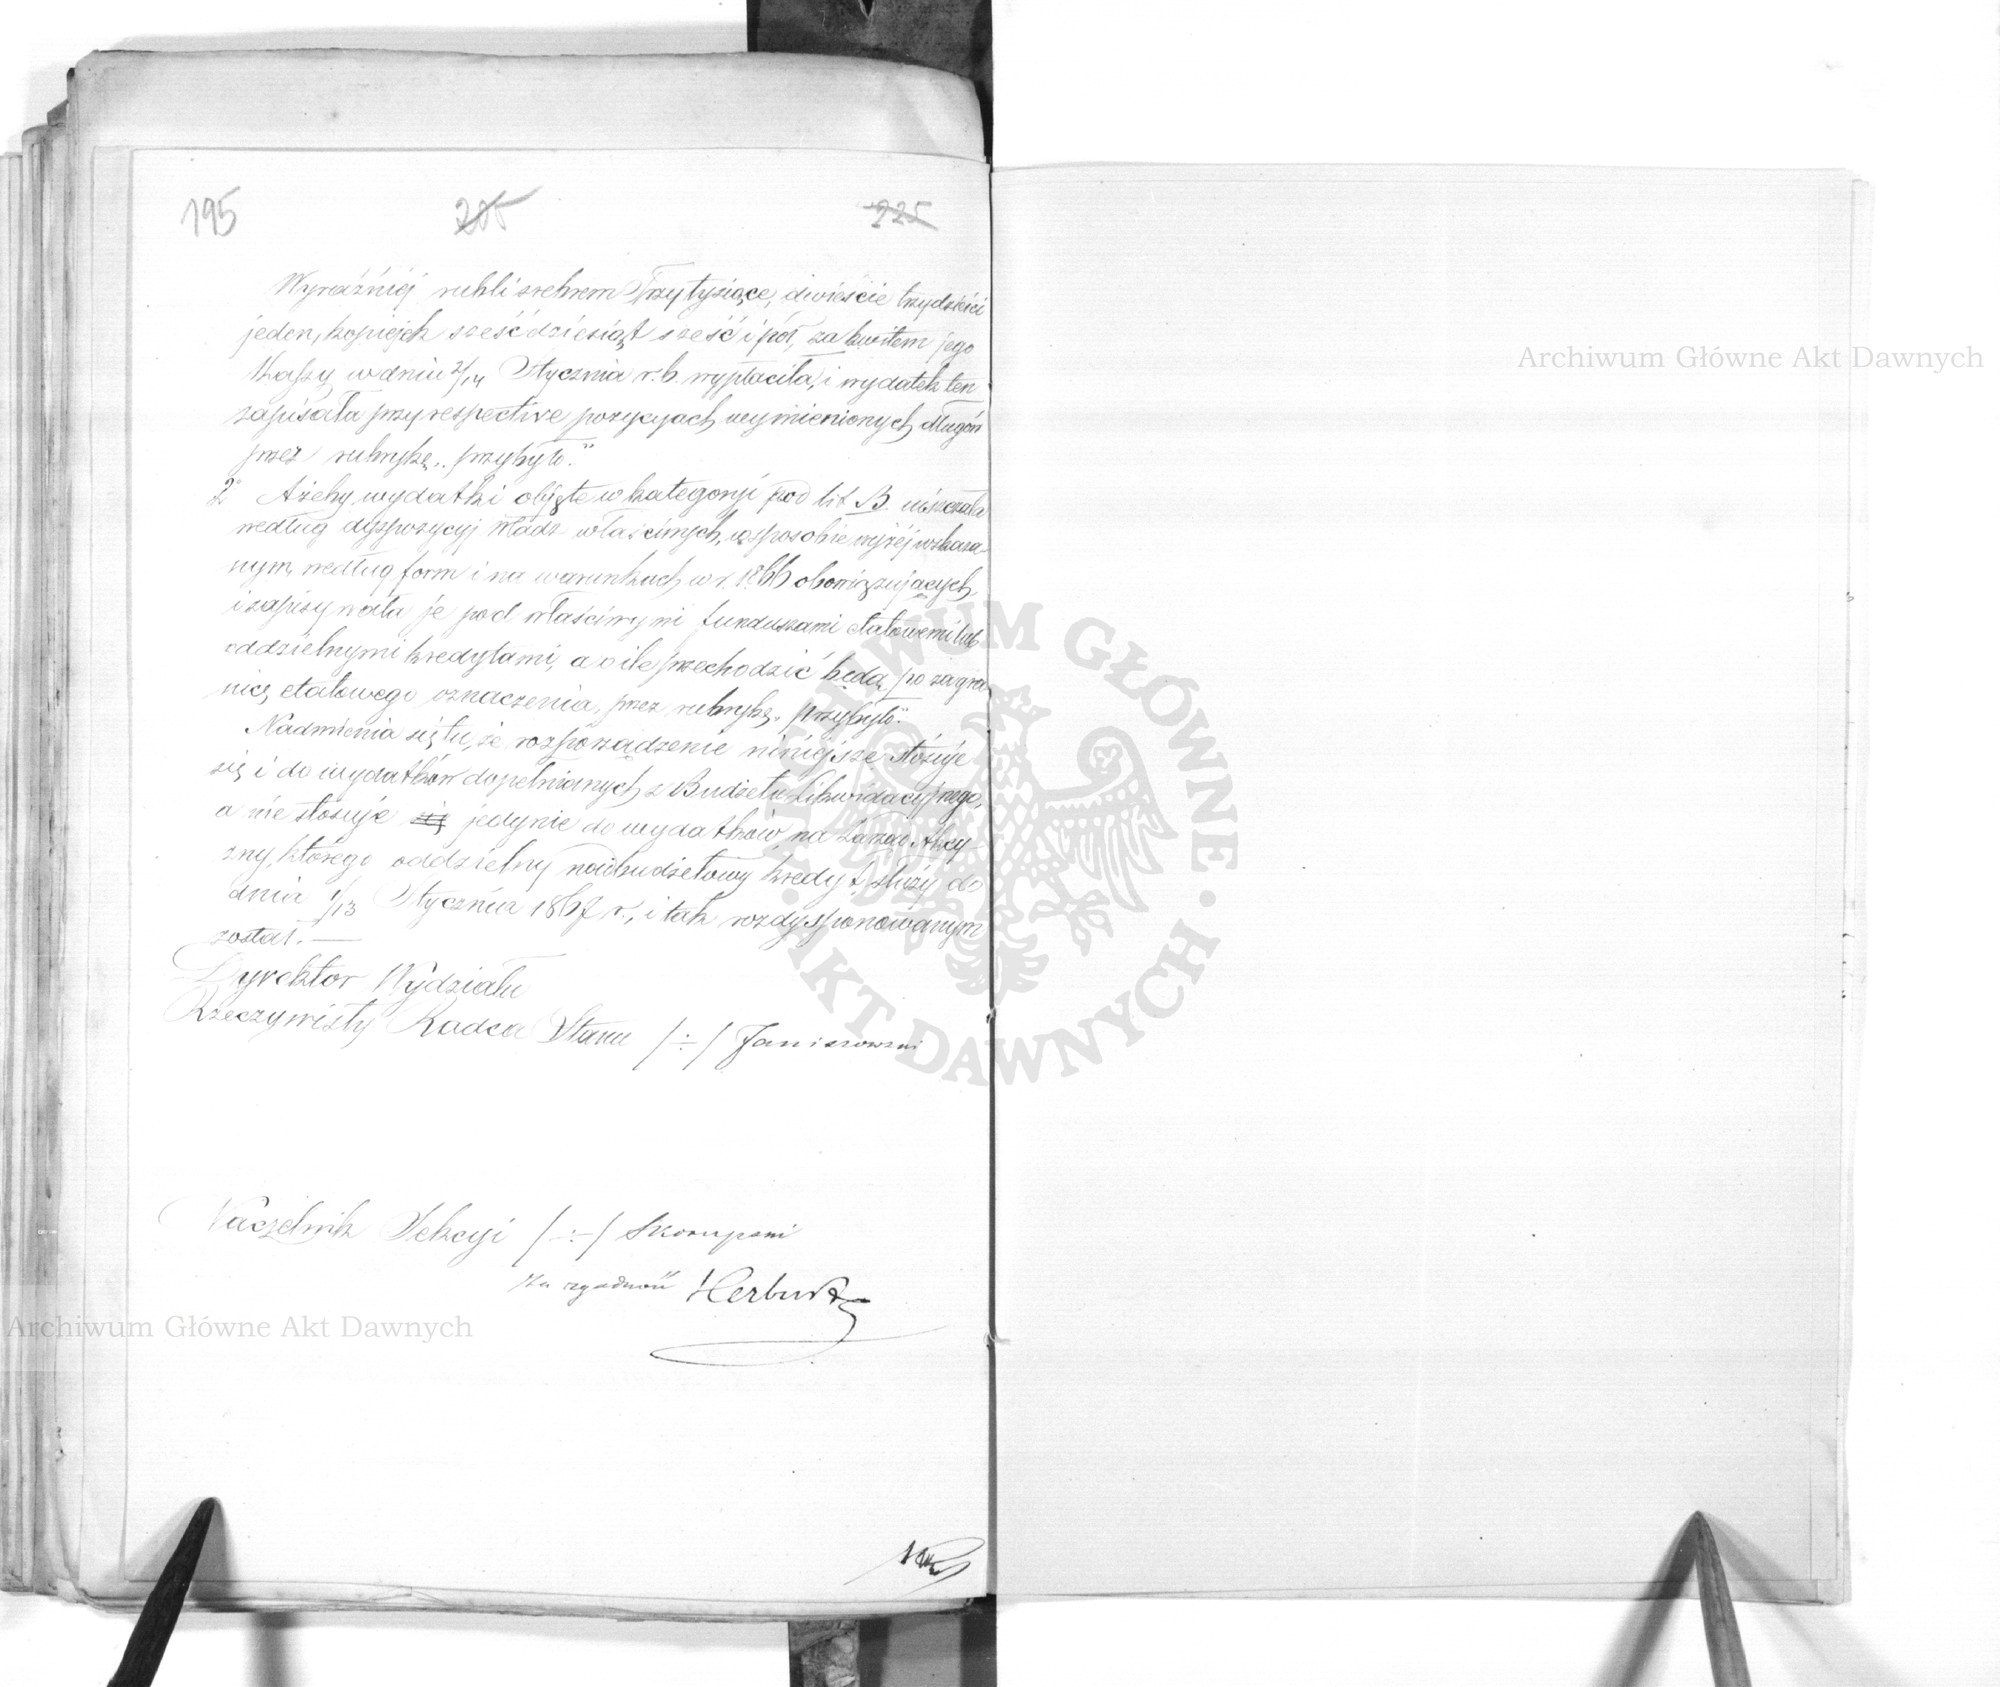 195 205 225
Wyraźniej rubli srebrem Trzy tysiące, dwieście trzydzieści
jeden, kopiejek sześćdziesiąt sześć i pół, za kwitem jego
Kassy w dniu 2/14 Stycznia r. b. wypłaciła, i wydatek ten
zapisała przy respective pozycyach wymienionych długów
przez rubrykę „przybyło."
2° Ażeby wydatki objęte w kategoryi pod lit B. uiszczała
według dyspozycyj Władz właściwych, w sposobie wyżej wskaza-
nym, według form i na warunkach w r. 1866 obowiązujących
i zapisywała je pod właściwymi funduszami etatowemi lub
oddzielnymi kredytami, a o ile przechodzić będą po za gra-
nicę etatowego oznaczenia, przez rubrykę „przybyło".
Nadmienia się tu, że rozporządzenie niniejsze stosuje
się i do wydatków dopełnianych z Budżetu Likwidacyjnego,
a nie stosuje się jedynie do wydatków na Zarząd Akcy-
zny, którego oddzielny nadbudżetowy kredyt, służy do
dnia 1/13 Stycznia 1867 r., i tak rozdysponowanym
został. —
Dyrektor Wydziału
Rzeczywisty Radca Stanu /÷/ Janiszowski
Naczelnik Sekcyi /÷/ Skorupski
Za zgodność Herburt
Archiwum Główne Akt Dawnych
Archiwum Główne Akt Dawnych
ARCHIWUM GŁÓWNE · AKT DAWNYCH ·